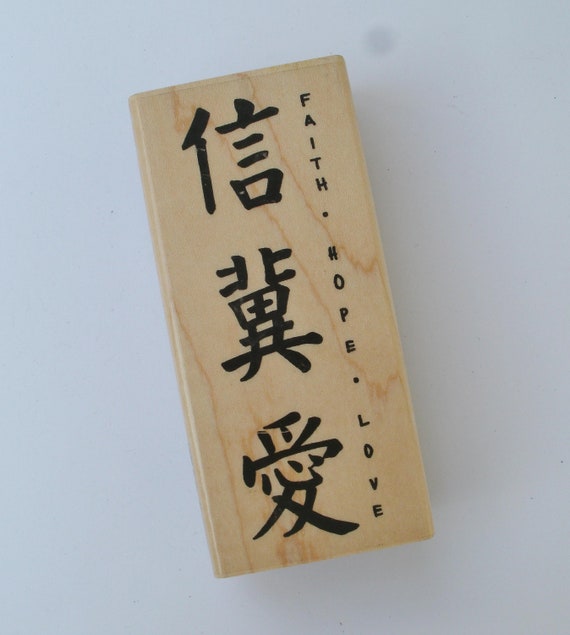 信冀愛
FAITH · HOPE · LOVE